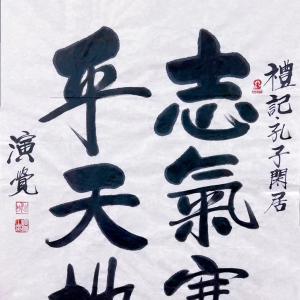 禮記·孔子閑居
志氣塞
平天地
演覺